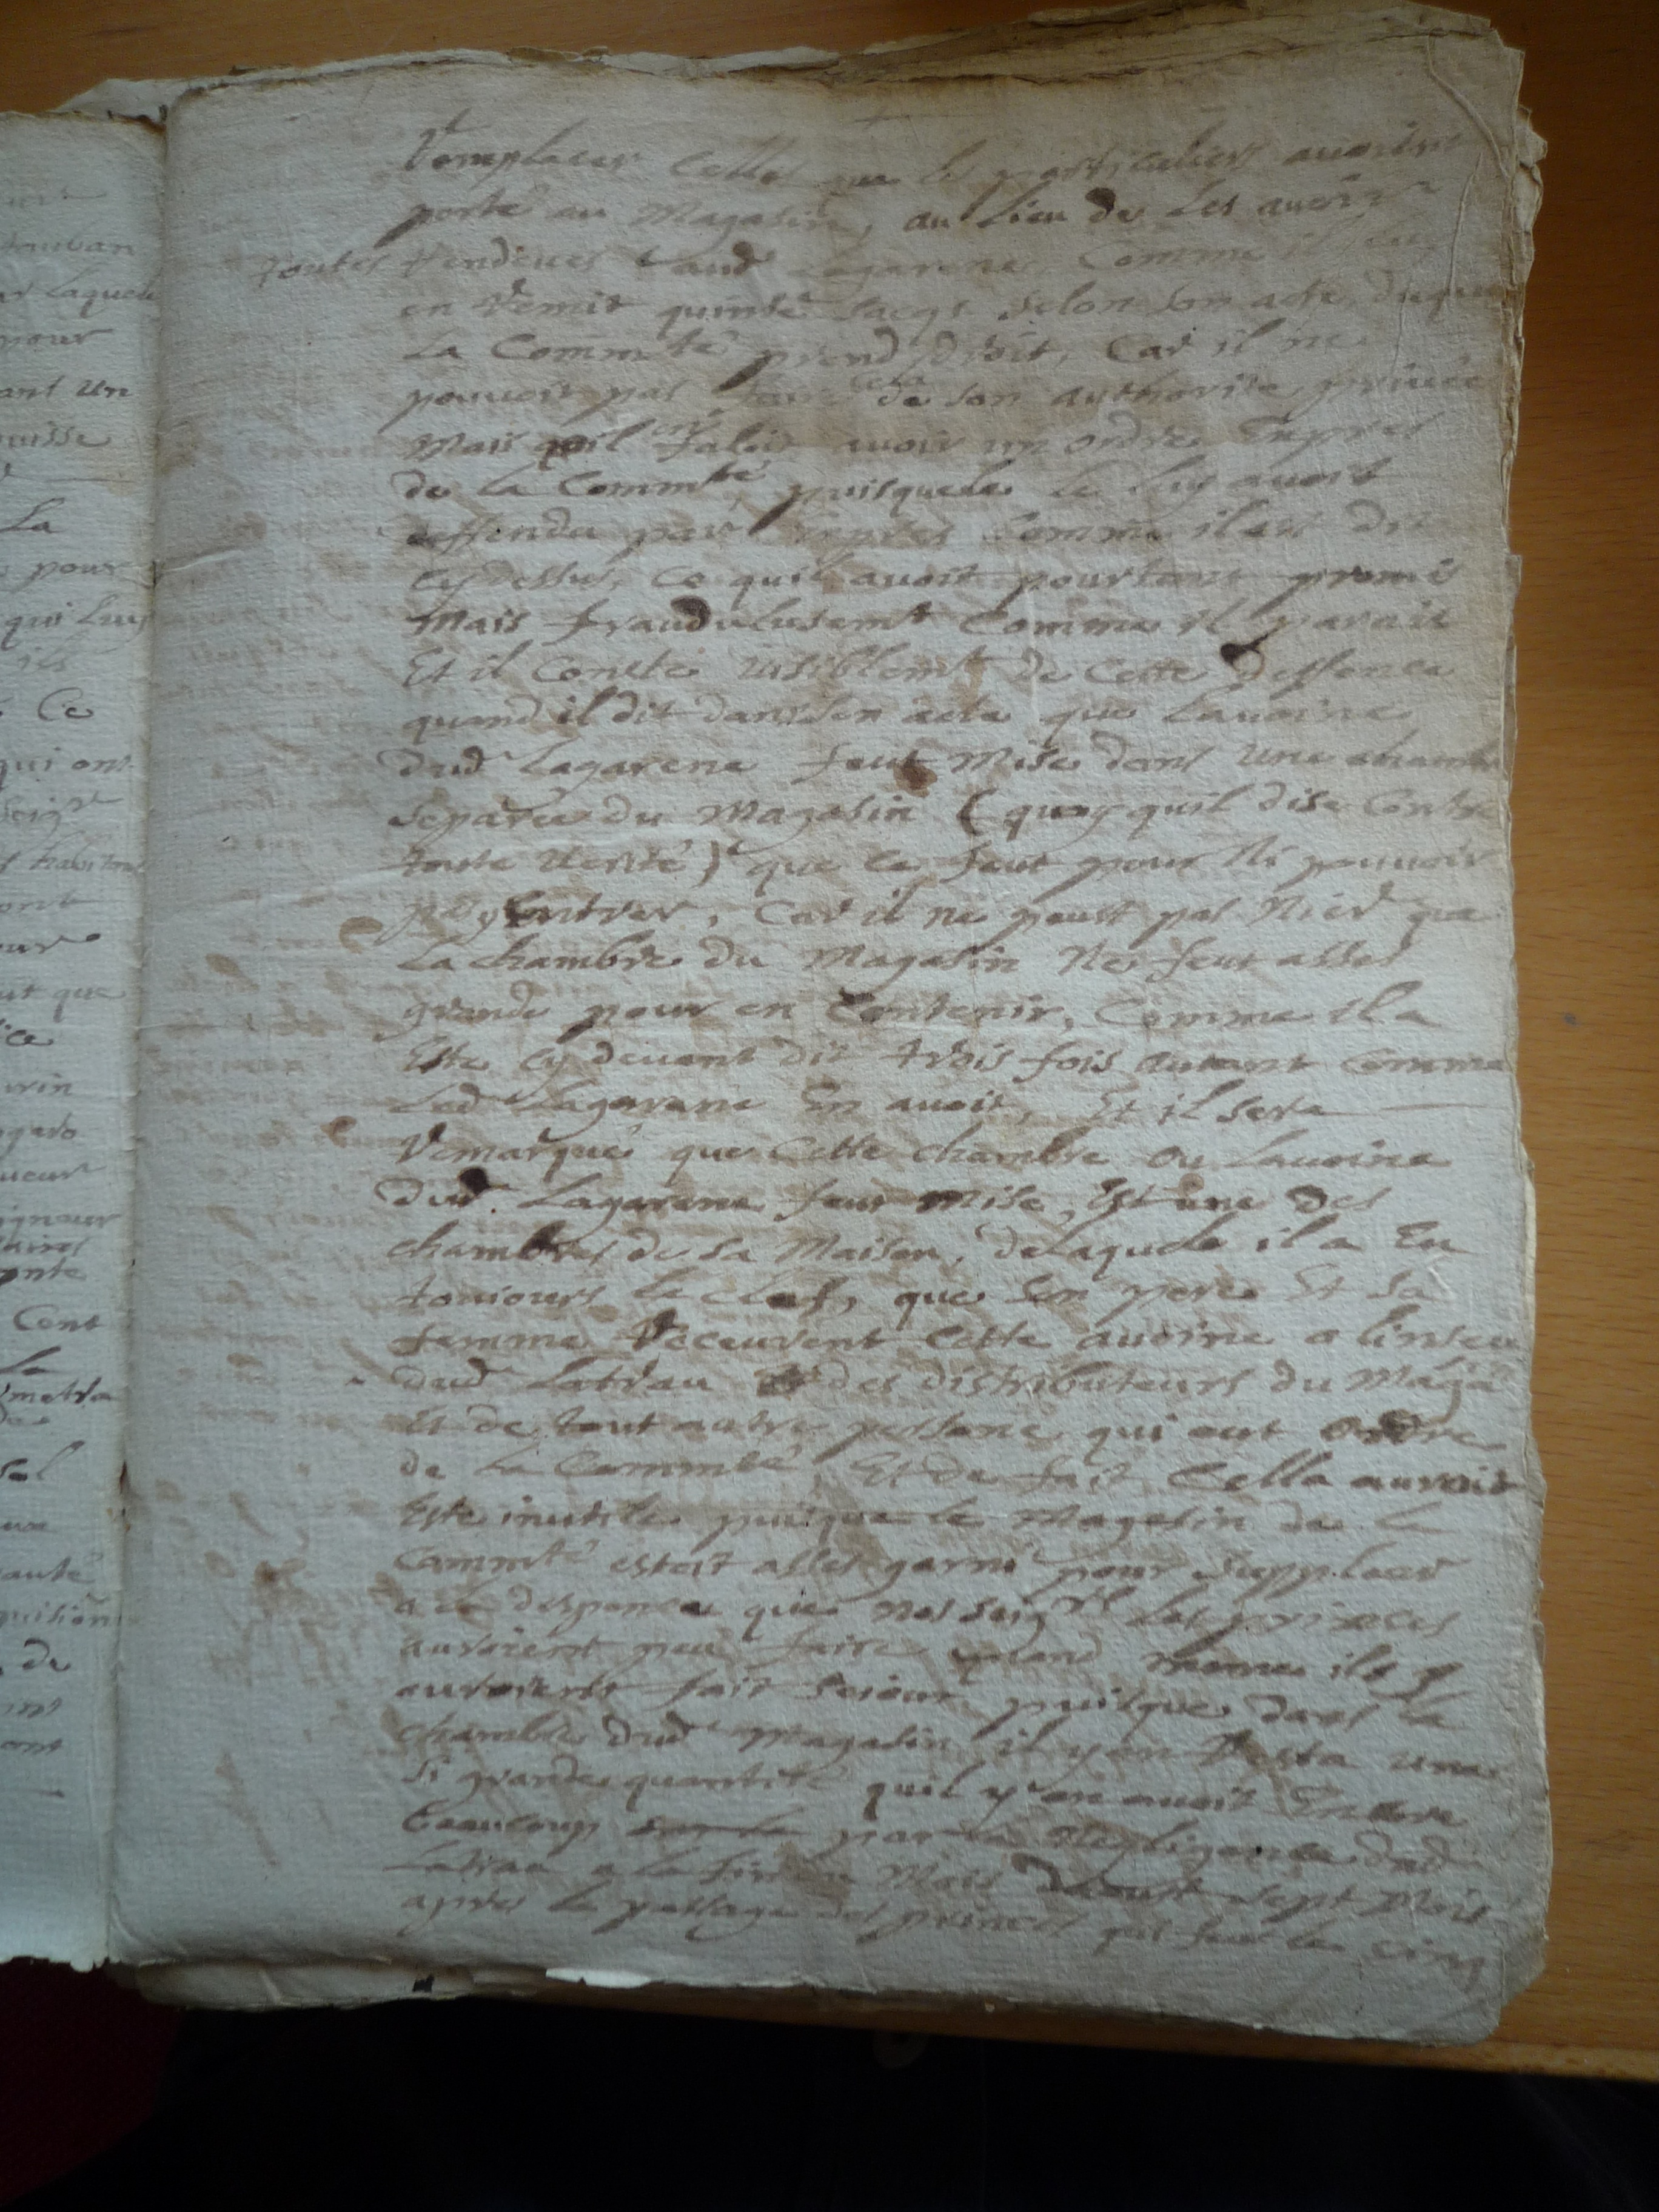 Remplacer celles que les particuliers avoint
porté au Magasin, au lieu de les avoir
toutes Rendeues aud Lagarene Comme il luy
en Remit quinse sacqs selon son acte, duquel
La Commté prend droit, Car il ne
pouvoit pas faire cela de son authorite privée
Mais quil en faloit avoir un ordre Exprés
de la Commté puisquele le luy avoit
deffendu par Exprés Comme il est dit
Cy dessus, Ce quil avoit pourtant promis
Mais fraudulusemt Comme il parait
Et il Conste visiblemt de Cette deffence
quand il dit dans son acte que Lavoine
dud Lagarene feut Mise dans Une chambre
Separée du Magasin (quoy quil dise Contre
toute Verité) que ce feut pour Ni pouvoir
pas y entrer, Car il ne peust pas Nier que
La chambre du Magasin Ne feut asses
grande pour en Contenir, Comme il a
Este Cy devant dit trois fois autant Comme
Led Lagarene En avoit, Et il sera
Remarqué que Cette chambre ou Lavoine
dud. Lagarene feut Mise, Est une des
chambres de sa Maison, delaquele il a Eu
toujours la clef, que son pere Et sa
femme Receurent Cette avoine a linseu
dud Latrau Et des distributeurs du Maga
Et de tout autre persone qui eut Ordre
de la Commté, Et de fait Cella auroit
Este inutile puisque le Magasin de la
Commté estoit asses garni pour Supplaer
a la despence que Nosseigrs Les princes
auroient peu faire quand meme ils y
auroient fait Seiour puisque dans la
chambre dud Magasin il y en Resta une
Si grande quantité quil y en avoit Encore
beaucoup par la Negligence dud
Latrau a la fin du Mois daoust Sept Mois
apres le passage des princes qui feut le cinq